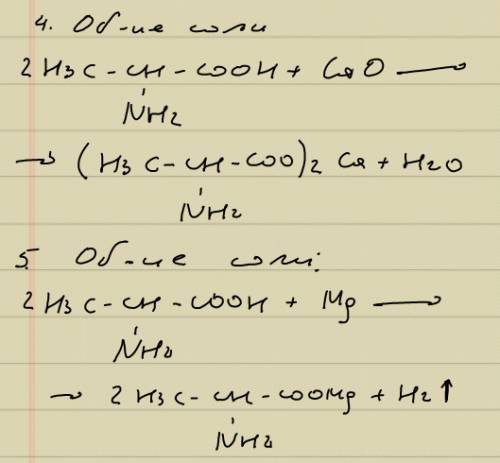 4. Об-ие соли
2 H3C - CH - COOH + CaO ⟶
NH2
→ (H3C - CH - COO)2 Ca + H2O
NH2
5. Об-ие соли:
2 H3C - CH - COOH + Mg ⟶
NH2
→ 2 H3C - CH - COOMg + H2↑
NH2